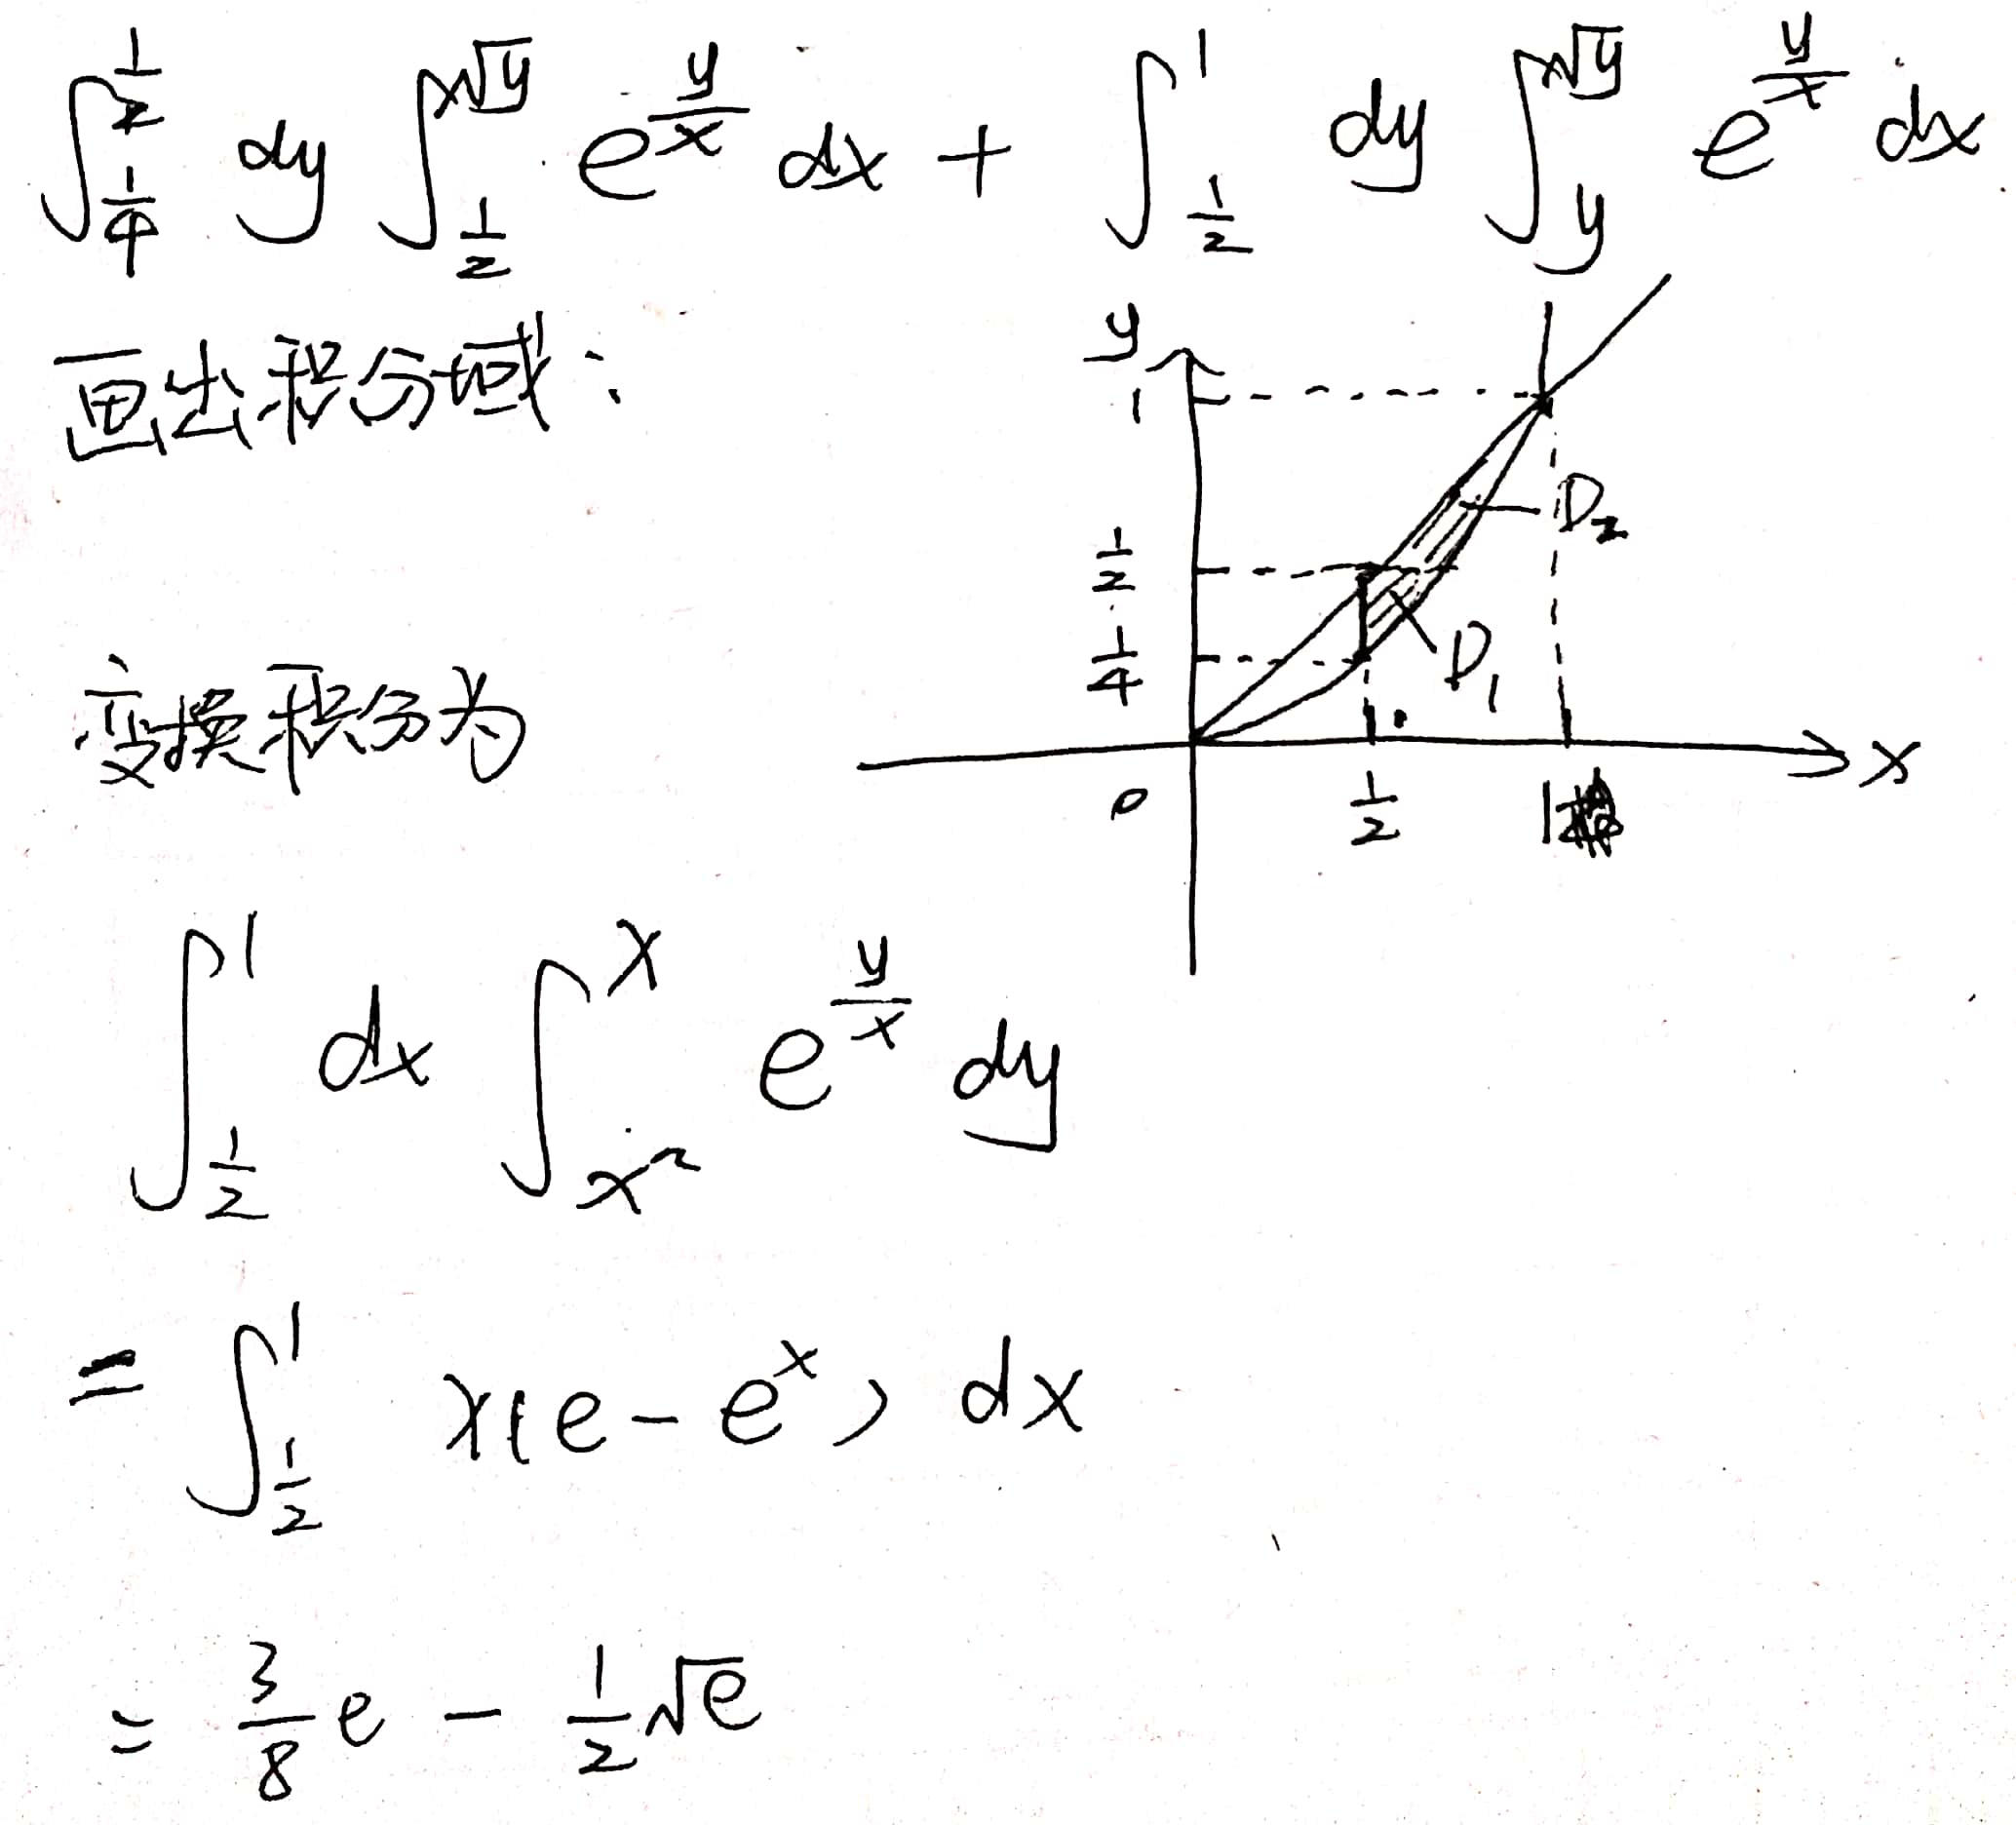 ∫_{1/4}^{1/2} dy ∫_{1/2}^{√y} e^{y/x} dx + ∫_{1/2}^{1} dy ∫_{y}^{√y} e^{y/x} dx
画出积分域:
y
1
D₂
1/2
1/4
D₁
变换积分为
x
0 1/2 1
∫_{1/2}^{1} dx ∫_{x²}^{x} e^{y/x} dy
= ∫_{1/2}^{1} x(e - e^x) dx
= 3/8 e - 1/2 √e